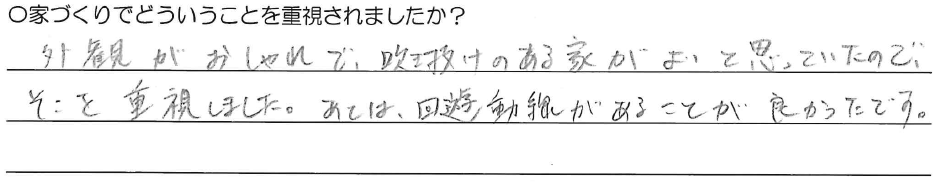 ○家づくりでどういうことを重視されましたか？
外観がおしゃれで、吹き抜けのある家がよいと思っていたので、
そこを重視しました。あとは、回遊動線があることが良かったです。